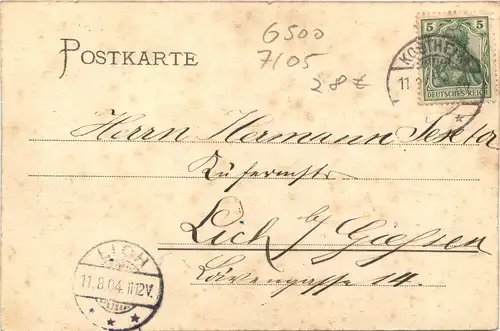 6500
7105
28
POSTKARTE
5 5
DEUTSCHES REICH
KOSTHEIM
11.
Herrn Hermann
Lich b/ Giessen
Löwengasse 14.
LICH
11.8.04. 11-12V.